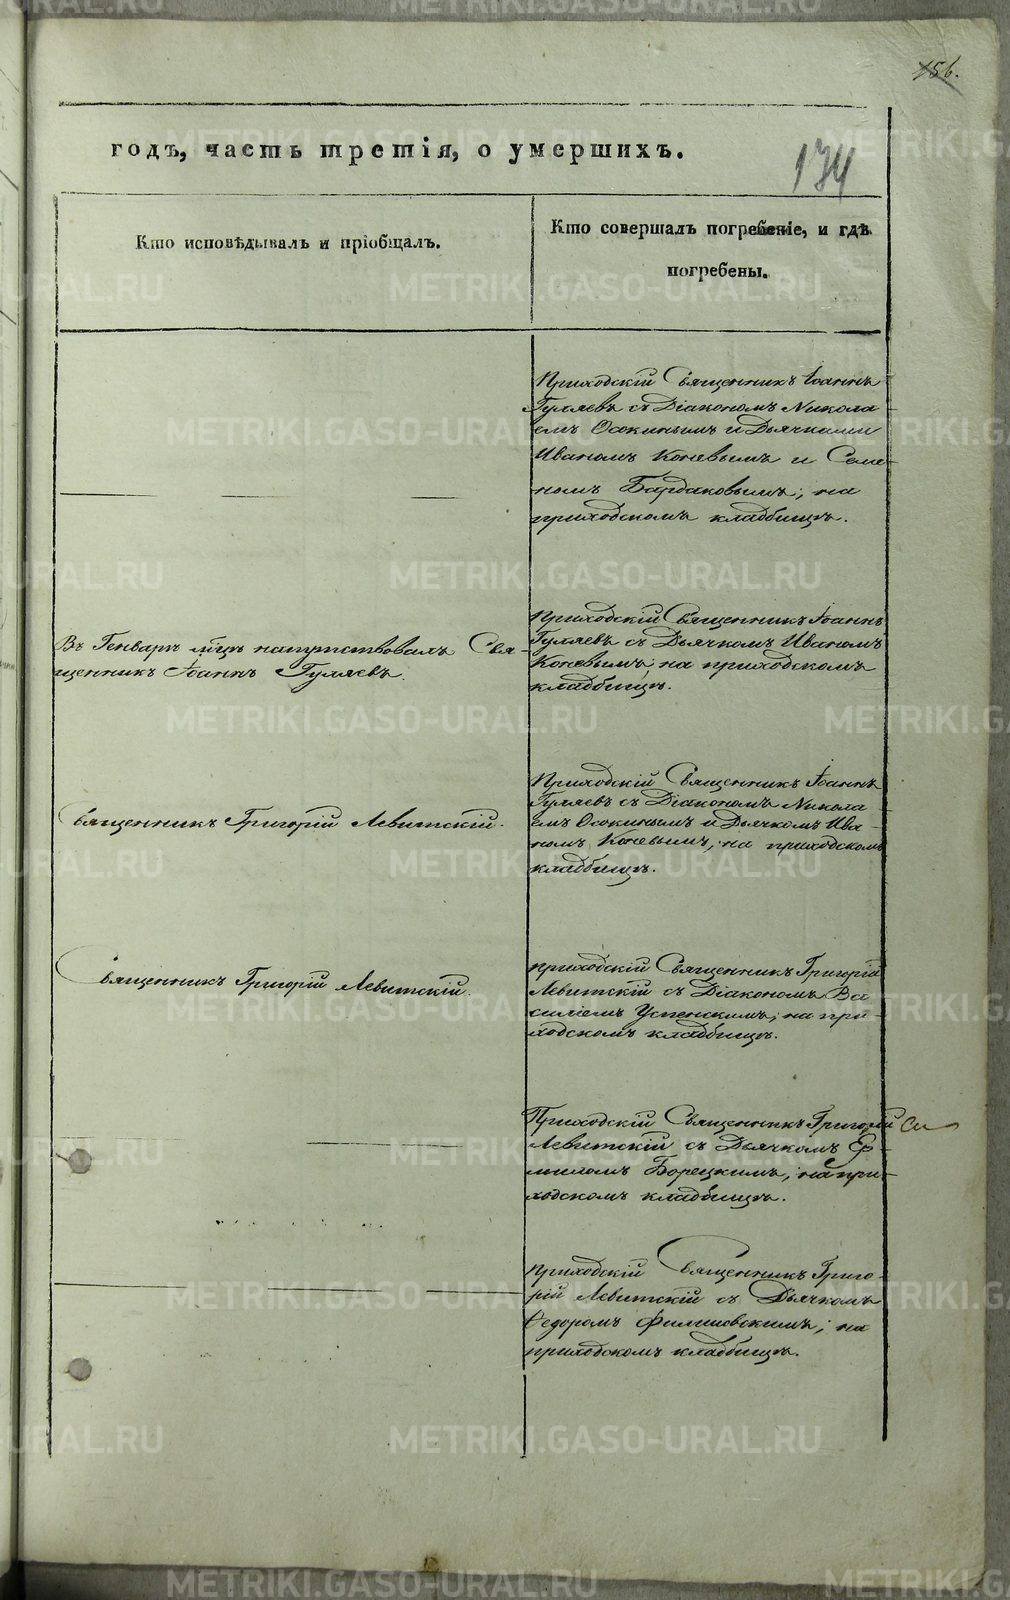 156.
174
годъ, часть третія, о умершихъ.
Кто исповѣдывалъ и пріобщалъ.
Кто совершалъ погребеніе, и гдѣ
погребены.
Приходскій Священникъ Іоаннъ
Гуляевъ съ Діакономъ Никола-
емъ Осокинымъ и Дьячками
Иваномъ Коневымъ и Семе-
номъ Бардаковымъ; на
приходскомъ кладбищѣ.
Въ Генварѣ мѣцѣ напутствовалъ Свя-
щенникъ Іоаннъ Гуляевъ.
Приходскій Священникъ Іоаннъ
Гуляевъ съ Дьячкомъ Иваномъ
Коневымъ; на приходскомъ
кладбищѣ.
Священникъ Григорій Левитскій.
Приходскій Священникъ Іоаннъ
Гуляевъ съ Діакономъ Никола-
емъ Осокинымъ и Дьячкомъ Ива-
номъ Коневымъ; на приходскомъ
кладбищѣ.
Священникъ Григорій Левитскій.
Приходскій Священникъ Григорій
Левитскій съ Діакономъ Ва
силіемъ Успенскимъ; на при-
ходскомъ кладбищѣ.
Приходскій Священникъ Григорій
Левитскій съ Дьячкомъ Ер-
миломъ Борецкимъ; на при-
ходскомъ кладбищѣ.
Приходскій Священникъ Григо-
рій Левитскій съ Дьячкомъ
Ѳедоромъ Филиповскимъ; на
приходскомъ кладбищѣ.
METRIKI.GASO-URAL.RU